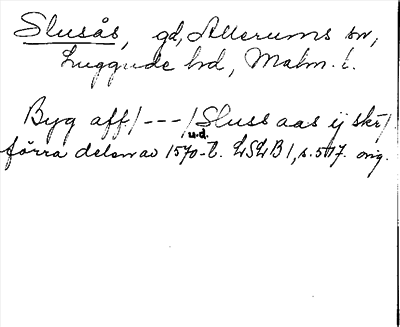 Slusås, gd, Allerums sn,
Luggude hd, Malm. l.
Byg aff/---/Sluss aas ij skr/
u.d.
förra delen av 1570-t. LSLB 1, s. 517. orig.